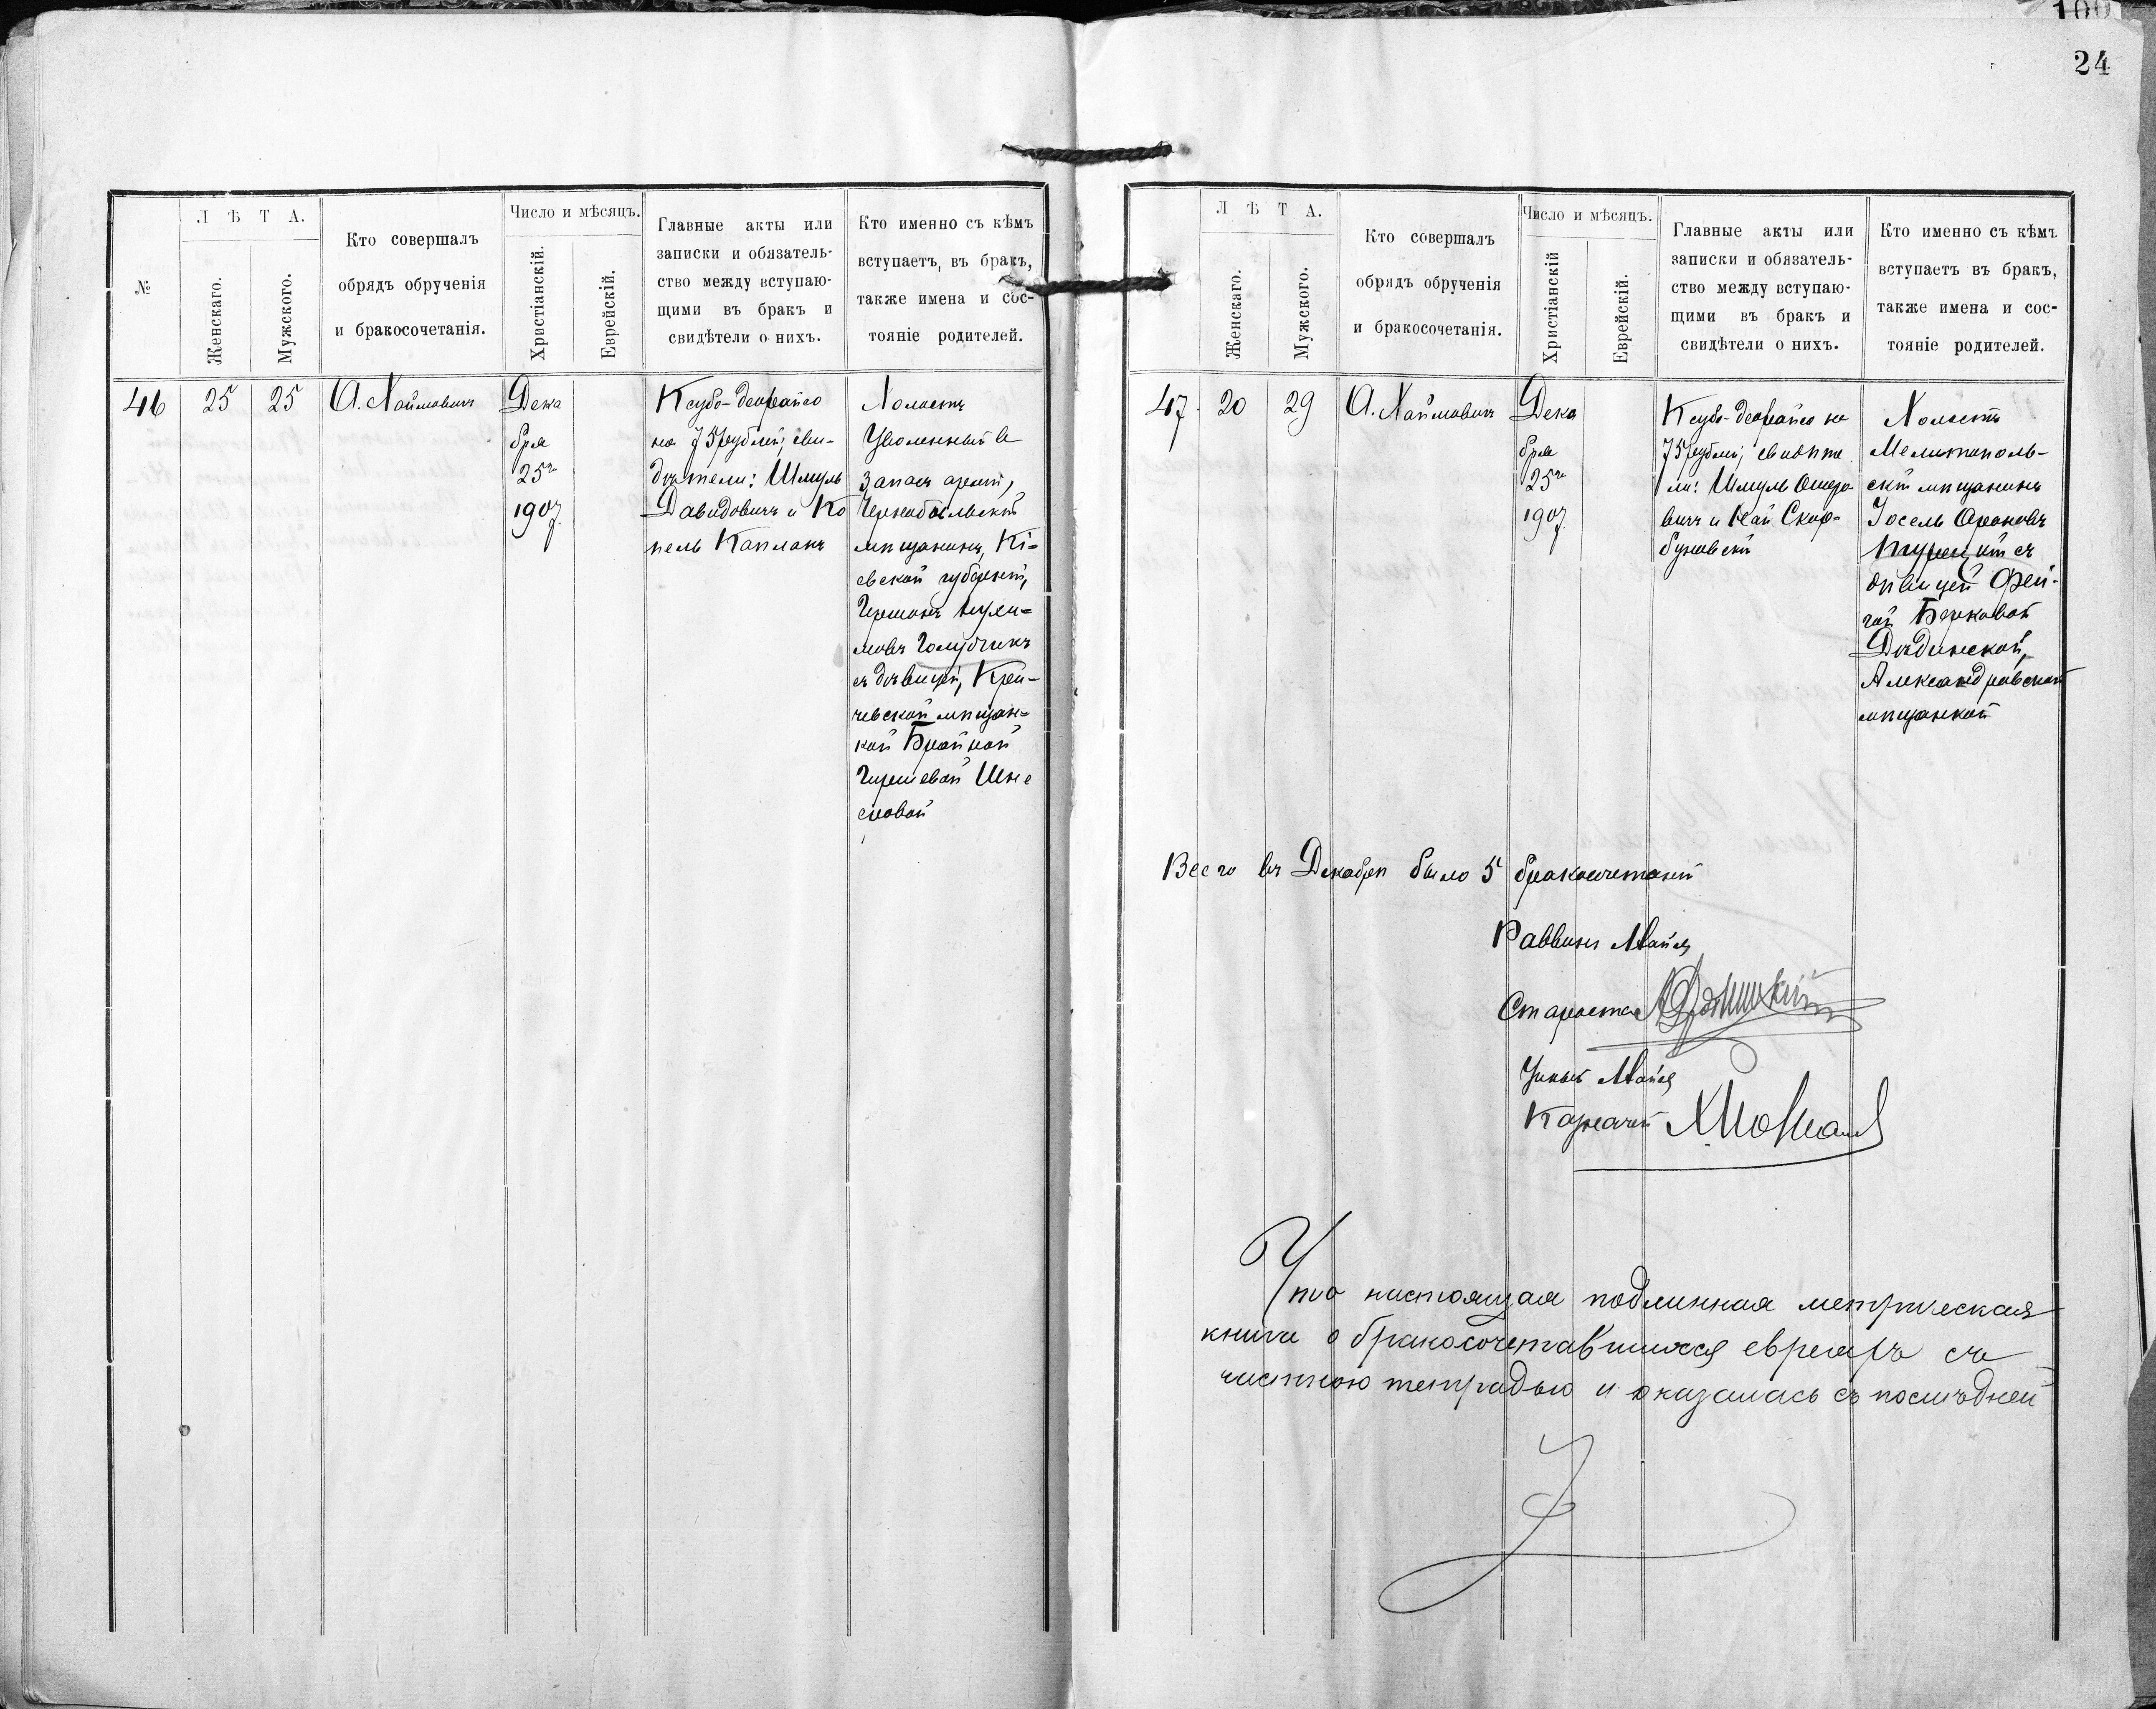 100
24
№
Л Ѣ Т А.
Женскаго.
Мужского.
Кто совершалъ
обрядъ обрученія
и бракосочетанія.
Число и мѣсяцъ.
Христіанскій.
Еврейскій.
Главные акты или
записки и обязатель-
ство между вступаю-
щими въ бракъ и
свидѣтели о нихъ.
Кто именно съ кѣмъ
вступаетъ, въ бракъ,
также имена и сос-
тояніе родителей.
46
25
25
А. Хаймовичъ
Дека
бря
25го
1907
Ксубо-деорайсо
на 75 рублей; сви-
дѣтели: Шмуль
Давидовичъ и Ко
пель Капланъ
Холостъ
Уволенный въ
запасъ арміи,
Чернобыльскій
мѣщанинъ, Кі=
евской губерніи,
Гершонъ
мовъ Голубчикъ
съ дѣвицей, Кри-
чевской мѣщан=
кой Брайной
Гиршевой Шне
еровой
Л Ѣ Т А.
Женскаго.
Мужского.
Кто совершалъ
обрядъ обрученія
и бракосочетанія.
Число и мѣсяцъ.
Христіанскій
Еврейскій.
Главные акты или
записки и обязатель-
ство между вступаю-
щими въ бракъ и
свидѣтели о нихъ.
Кто именно съ кѣмъ
вступаетъ въ бракъ,
также имена и сос-
тояніе родителей.
47.
20
29
А. Хаймовичъ
Дека
бря
25го
1907
Ксубо-деорайсо на
75 рублей; свидѣте
ли: Шмуль Ошеро
вичъ и Скар-
буновскій
Холостъ
Мелитополь-
скій мѣщанинъ
Іосель Ароновъ
съ
дѣвицей Фей-
гой Берковой
Дѣдинской,
Александровской
мѣщанкой
Всего въ Декабрѣ было 5 бракосочетаній
Раввинъ
Староста
Ученый
Казначей
Что настоящая подлинная метрическая
книга о бракосочетавшихся евреяхъ съ
частною тетрадью и оказалась съ послѣдней